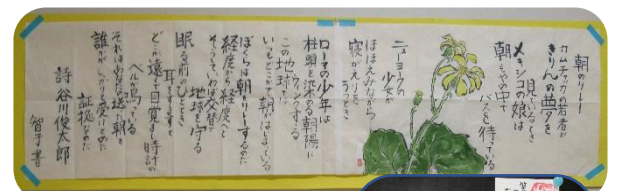 朝のリレー
カムチャッカの若者が
きりんの夢を
見ているとき
メキシコの娘は
朝もやの中で
バスを待っている
ニューヨークの
少女が
ほほえみながら
寝がえりを
うつとき
ローマの少年は
柱頭を染める朝陽に
ウインクする
この地球では
いつもどこかで朝がはじまっている
ぼくらは朝をリレーするのだ
経度から経度へと
そうしていわば交替で
地球を守る
眠る前のひととき
耳をすますと
どこか遠くで目覚まし時計の
ベルが鳴っている
それはあなたの送った朝を
誰かがしっかりと受けとめた
証拠なのだ
詩 谷川俊太郎
智子書